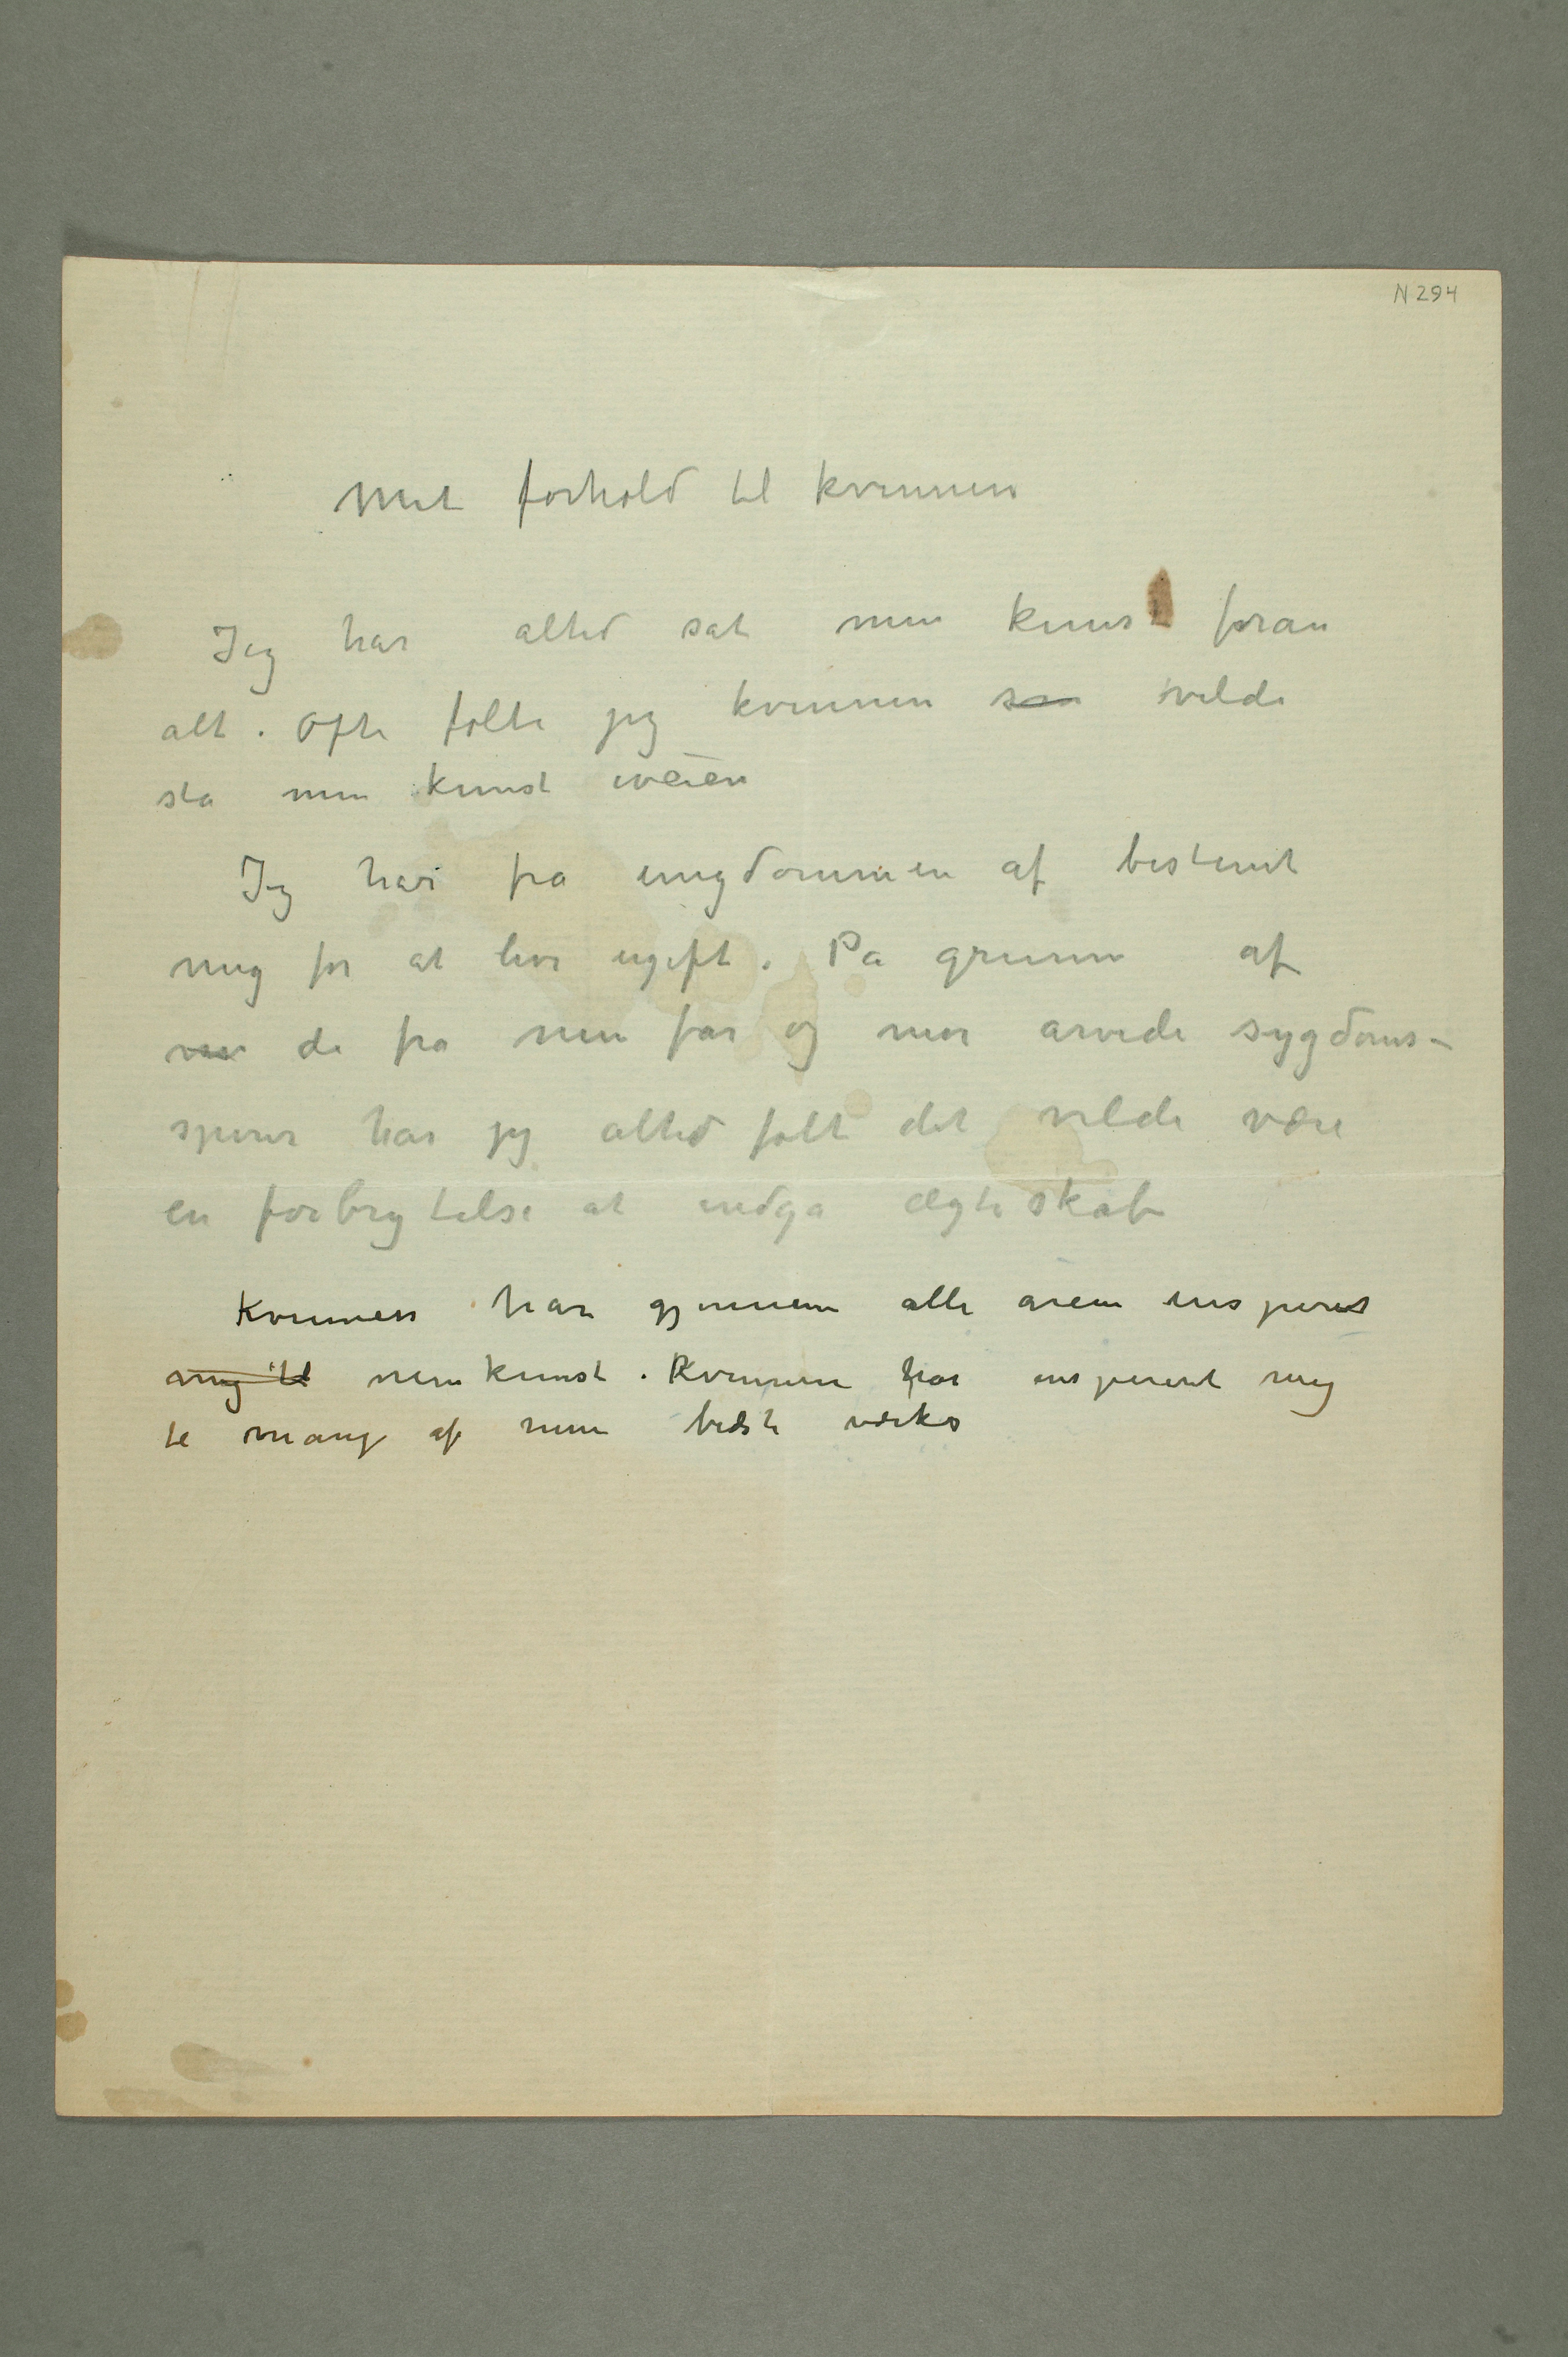 N 294
Mit forhold til kvinnen
Jeg har altid sat min kunst foran
alt. Ofte følte jeg kvinnen som vilde
stå min kunst iveien
Jeg har fra ungdommen af bestemt
mig for at leve ugift. På grunn af
de fra min far og mor arvede sygdoms-
spirer har jeg altid følt det vilde være
en forbrytelse at indgå ægteskab
Kvinnen har gjennem alle årene inspirert
mig til min kunst. Kvinnen har inspirert mig
til mange af mine bedste værker